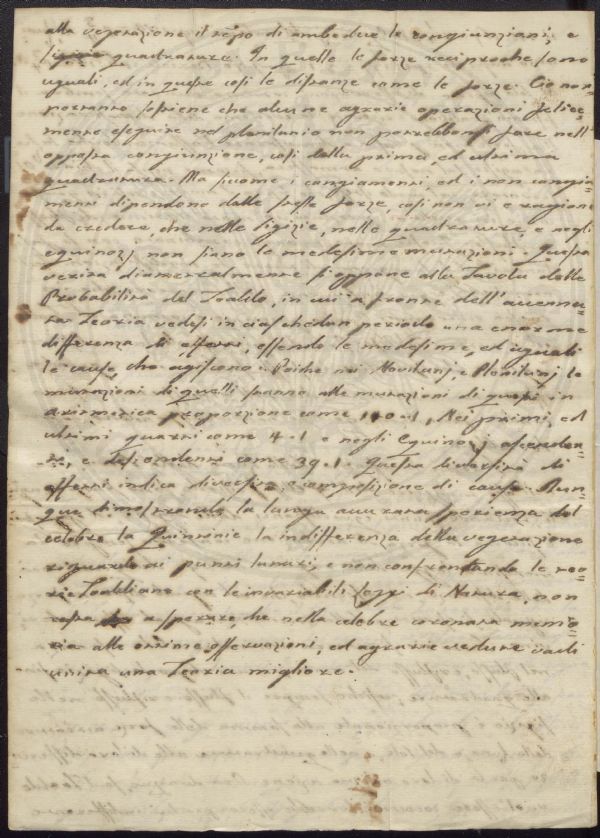 alla vegerazione il tempo di ambedue le congiunzioni, e
quadrature. In quelle le forze reciproche sono
uguali, ed in queste cosi le distanze come le forze. Cio non=
pertanto sostiene che alcune agrarie operazioni felice=
mente eseguite nel plenilunio non potrebbonsi fare nell'
opposta congiunzione, cosi della prima, ed ultima
quadratura. Ma siccome i cangiamenti, ed i non cangia=
menti dipendono dalle stesse forze, cosi non vi è ragione
da credere, che nelle sigizie, nelle quadrature, e negli
equinozj non siano le medesime mutazioni. Questa
verità diametralmente si oppone alla Tavola delle
Probabilità del Toaldo, in cui a fronte dell'accenna=
ta Teoria vedesi in ciaschedun periodo una enorme
differenza di effetti, essendo le medesime, ed uguali
le cause, che agiscono. Poiche nei Novilunj, e Plenilunj le
mutazioni di quelli stanno alle mutazioni di questi in
aritmetica proporzione come 1, Nei primi, ed
ultimi quarti come 4.1 e negli Equinozj ascenden=
ti, e discendenti come 39.1. Questa diversità di
effetti indica diversità, e composizione di cause. Dun=
que dimostrando la lunga accurata sperienza del
celebre la Quintinie la indifferenza della vegetazione
riguardo ai punti lunari, e non confrontando le teo=
rie Toaldiane con le invariabili leggi di Natura, non
resta a sperare che nella celebre coronata memo=
ria alle ottime osservazioni, ed agrarie vedute vada
unita una Teoria migliore.